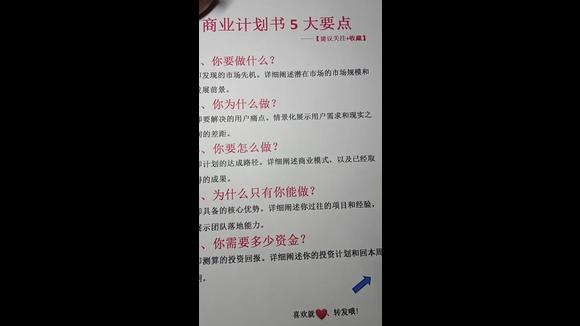 商业计划书 5 大要点
——【建议关注+收藏】
、你要做什么？
即发现的市场先机。详细阐述潜在市场的市场规模和
发展前景。
、你为什么做？
即要解决的用户痛点。情景化展示用户需求和现实之
间的差距。
、你要怎么做？
即计划的达成路径。详细阐述商业模式，以及已经取
得的成果。
、为什么只有你能做？
即具备的核心优势。详细阐述你过往的项目和经验，
展示团队落地能力。
、你需要多少资金？
即测算的投资回报。详细阐述你的投资计划和回本周
期。
喜欢就❤、转发哦！